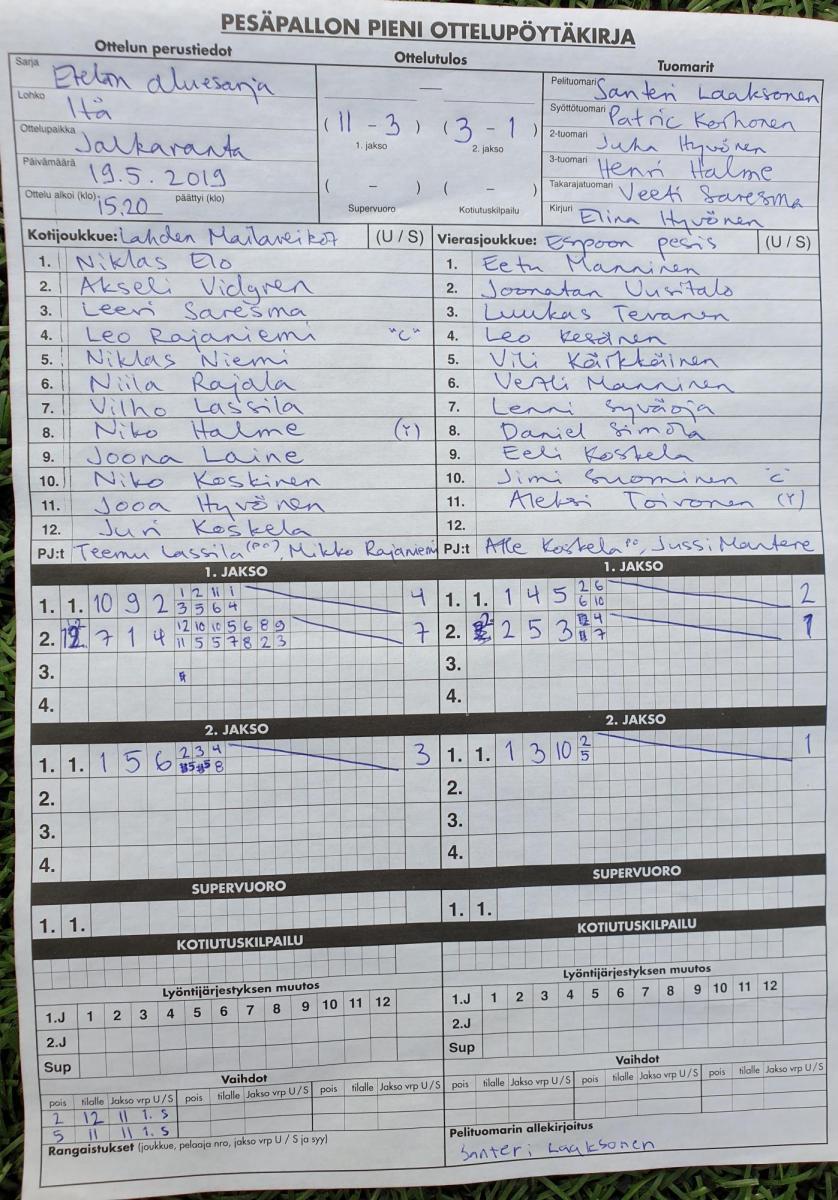 PESÄPALLON PIENI OTTELUPÖYTÄKIRJA
Ottelun perustiedot
Ottelutulos
Tuomarit
Sarja Etelän aluesarja
Lohko Itä
Ottelupaikka Jalkaranta
Päivämäärä 19.5.2019
Ottelu alkoi (klo) 15.20 päättyi (klo)
—
(11 - 3) (3 - 1)
1. jakso 2. jakso
( - ) ( - )
Supervuoro Kotiutuskilpailu
Pelituomari Santeri Laaksonen
Syöttötuomari Patric Korhonen
2-tuomari Juha Hyvönen
3-tuomari Henri Halme
Takarajatuomari Veeti Saresma
Kirjuri Elina Hyvönen
Kotijoukkue: Lahden Mailaveikot (U / S)
1. Niklas Elo
2. Akseli Vidgren
3. Leevi Saresma
4. Leo Rajaniemi "C"
5. Niklas Niemi
6. Niila Rajala
7. Vilho Lassila
8. Niko Halme (Y)
9. Joona Laine
10. Niko Koskinen
11. Jooa Hyvönen
12. Juri Koskela
PJ:t Teemu Lassila (PP), Mikko Rajaniemi
Vierasjoukkue: Espoon pesis (U / S)
1. Eetu Manninen
2. Joonatan Uusitalo
3. Luukas Tevanen
4. Leo Kesänen
5. Vili Kärkkäinen
6. Vertti Manninen
7. Lenni Syväoja
8. Daniel Simola
9. Eeli Koskela
10. Jimi Suominen "C"
11. Aleksi Toivonen (Y)
12.
PJ:t Atte Koskela, Jussi Mantere
1. JAKSO
1. 1. 10 9 2 1 2 11 1 4
3 5 6 4
2. 12 7 1 4 12 10 10 5 6 8 9 7
11 5 5 7 8 2 3
3.
4.
1. JAKSO
1. 1. 1 4 5 2 6 2
6 10
2. 2 2 5 3 4 1
7
3.
4.
2. JAKSO
1. 1. 1 5 6 2 3 4 3
5 5 8
2.
3.
4.
2. JAKSO
1. 1. 1 3 10 2 1
5
2.
3.
4.
SUPERVUORO
1. 1.
SUPERVUORO
1. 1.
KOTIUTUSKILPAILU
KOTIUTUSKILPAILU
Lyöntijärjestyksen muutos
1.J 1 2 3 4 5 6 7 8 9 10 11 12
2.J
Sup
Lyöntijärjestyksen muutos
1.J 1 2 3 4 5 6 7 8 9 10 11 12
2.J
Sup
Vaihdot
pois tilalle Jakso vrp U / S pois tilalle Jakso vrp U / S pois tilalle Jakso vrp U / S
2 12 11 1. S
5 11 11 1. S
Rangaistukset (joukkue, pelaaja nro, jakso vrp U / S ja syy)
Vaihdot
pois tilalle Jakso vrp U / S pois tilalle Jakso vrp U / S pois tilalle Jakso vrp U / S
Pelituomarin allekirjoitus
Santeri Laaksonen